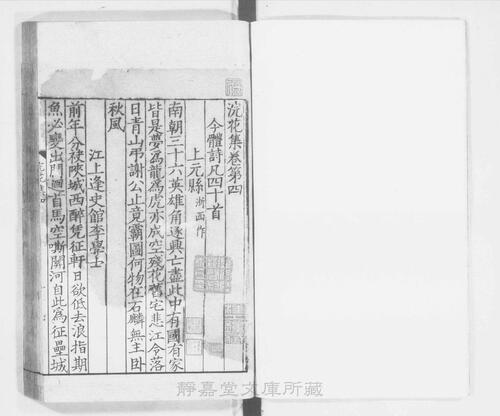 浣花集卷第四
今體詩凡四十首
上元縣 浙西作
南朝三十六英雄角逐興亡盡此中有國有家
皆是夢爲龍爲虎亦成空殘花舊宅悲江令落
日青山弔謝公止竟霸圖何物在石麟無主臥
秋風
江上逢史館李學士
前年分袂陜城西醉凭征軒日欲低去浪指期
魚必變出門迴首馬空嘶關河自此爲征壘城
靜嘉堂文庫所藏